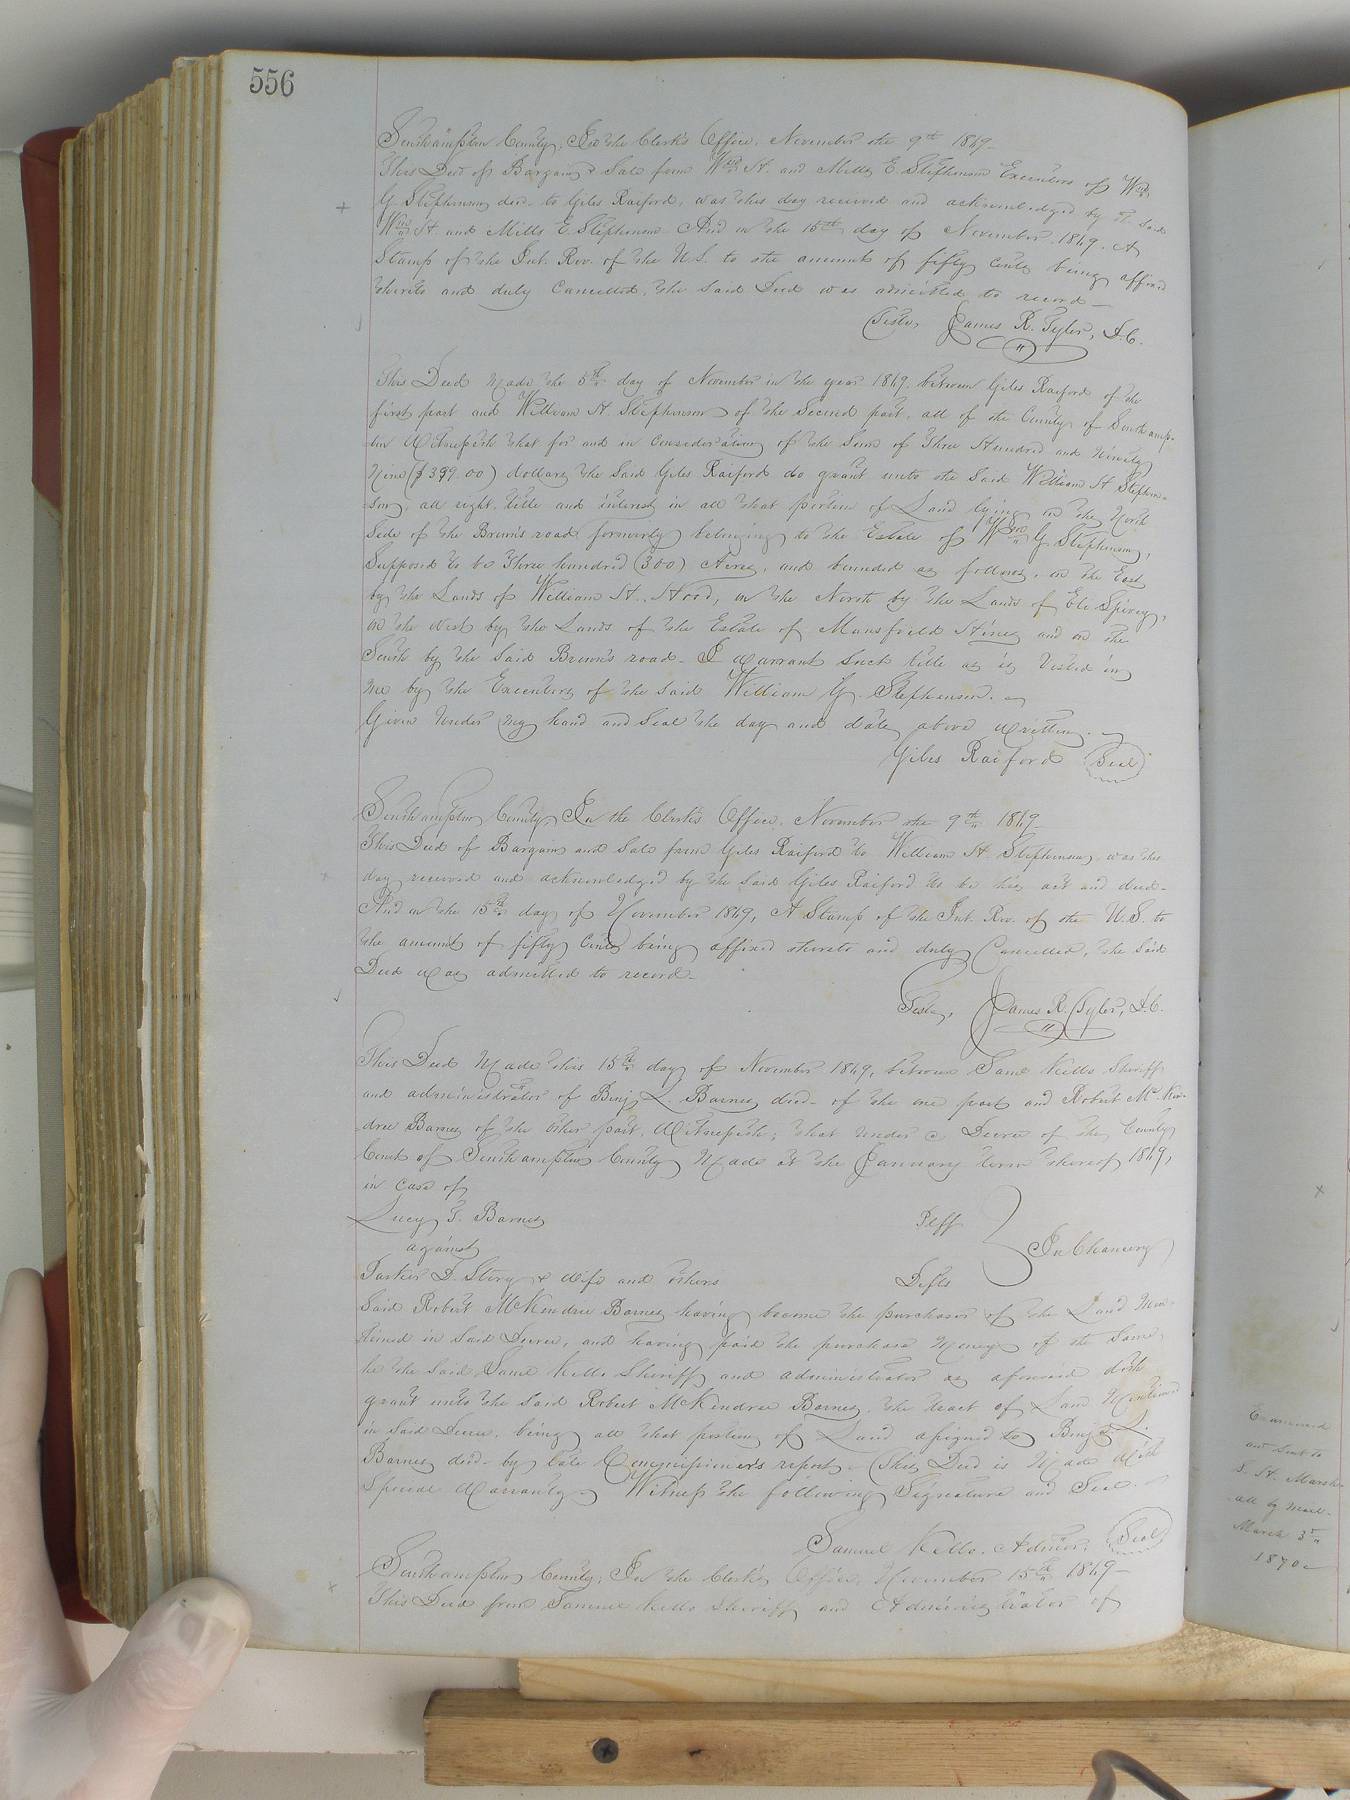 556
Southampton County, In the Clerk's Office, November the 9th 1869-
This Deed of Bargain & Sale from Wm H. and Mills E. Stephenson Executors of Wm
G Stephenson decd- to Giles Raiford, was this day received and acknowledged by the said
Wm H and Mills E Stephenson- And on the 15th day of November 1869. A
Stamp of the Int. Rev. of the U.S. to the amount of fifty cents being affixed
thereto and duly Cancelled, the said Deed was admitted to record-
Teste, James R. Tyler, D.C.
This Deed Made the 5th day of November in the year 1869, between Giles Raiford of the
first part and William H. Stephenson of the Second part, all of the County of Southamp-
ton Witnesseth that for and in Consideration of the Sum of Three Hundred and Ninety
Nine ($399.00) dollars, the Said Giles Raiford do grant unto the Said William H Stephen-
son, all right, title and interest in all that portion of Land lying on the North
Side of the Brown's road formerly belonging to the Estate of Wm G Stephenson,
Supposed to be Three hundred (300) Acres, and bounded as follows, on the East
by the Lands of William H. Hood, on the North by the Lands of Eli Spivey,
on the West by the Lands of the Estate of Mansfield Hines and on the
South by the Said Brown's road- I warrant Such title as is Vested in
me by the Executors of the Said William G. Stephenson.
Given Under My hand and Seal the day and date above Written.
Giles Raiford Seal
Southampton County, In the Clerk's Office, November the 9th 1869-
This Deed of Bargain and Sale from Giles Raiford to William H. Stephenson, was this
day received and acknowledged by the Said Giles Raiford to be his act and deed-
And on the 15th day of November 1869, A Stamp of the Int. Rev. of the U.S. to
the amount of fifty Cents being affixed thereto and duly Cancelled, the Said
Deed was admitted to record-
Teste, James R. Tyler, D.C.
This Deed Made this 15th day of November 1869, between Saml Kello Sheriff
and administrator of Benj L. Barnes decd- of the one part and Robert Mc.Ken-
dree Barnes of the other part, Witnesseth; that under a Decree of the County
Court of Southampton County Made at the January term thereof 1869,
in Case of
Lucy T. Barnes Plff
against In Chancery
Parker D. Story & Wife and others Defts
Said Robert McKendree Barnes having become the purchaser of the Land Men-
tioned in Said Decree, and having paid the purchase Money of the Same,
he the Said Saml Kello Sheriff and administrator as aforesaid doth
grant unto the Said Robert McKendree Barnes, the tract of Land Mentioned
in Said Decree, being all that portion of Land assigned to Benj L.
Barnes decd- by late Commissioner's report- This Deed is Made With
Special Warranty. Witness the following Signature and Seal.
Samuel Kello. Admor, Seal
Southampton County, In the Clerk's Office, November 15th 1869-
This Deed from Samuel Kello Sheriff and Administrator of
Examined
and Sent to
S. H. Marsh-
all by Mail-
March 3rd
1870-